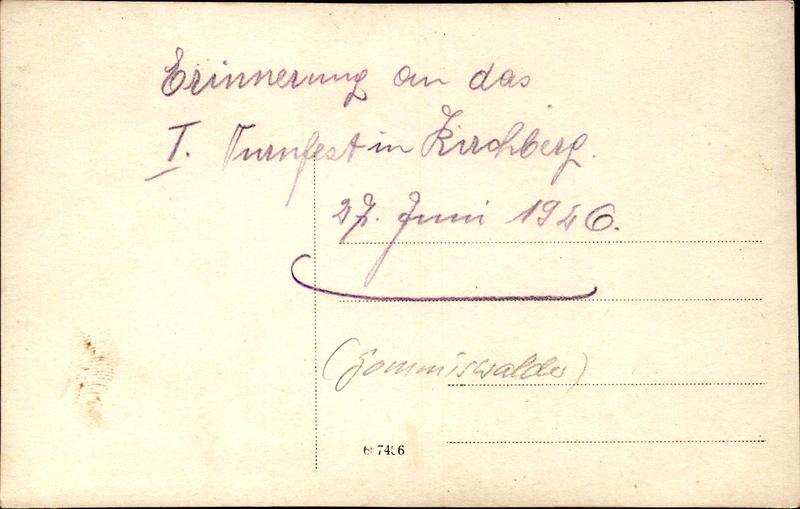 Erinnerung an das
I. Turnfest in Kirchberg.
27. Juni 1926.
(Gommiswalder)